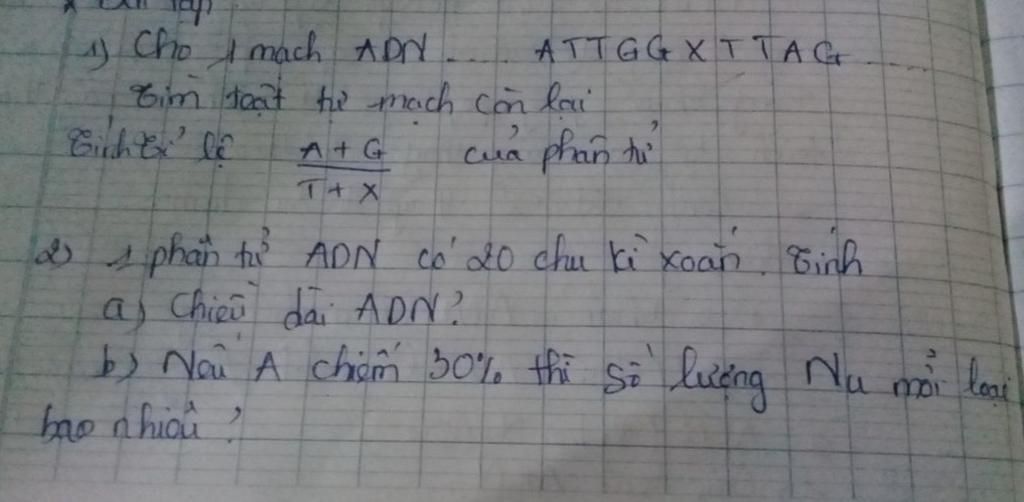 1) Cho 1 mạch ADN .... ATTGGXTTAG ....
Tìm trật tự mạch còn lại
Tính tỉ lệ A + G / T + X của phân tử
2) 1 phân tử ADN có 20 chu kì xoắn. Tính
a) Chiều dài ADN?
b) Nếu A chiếm 30% thì số lượng Nu mỗi loại
bao nhiêu?